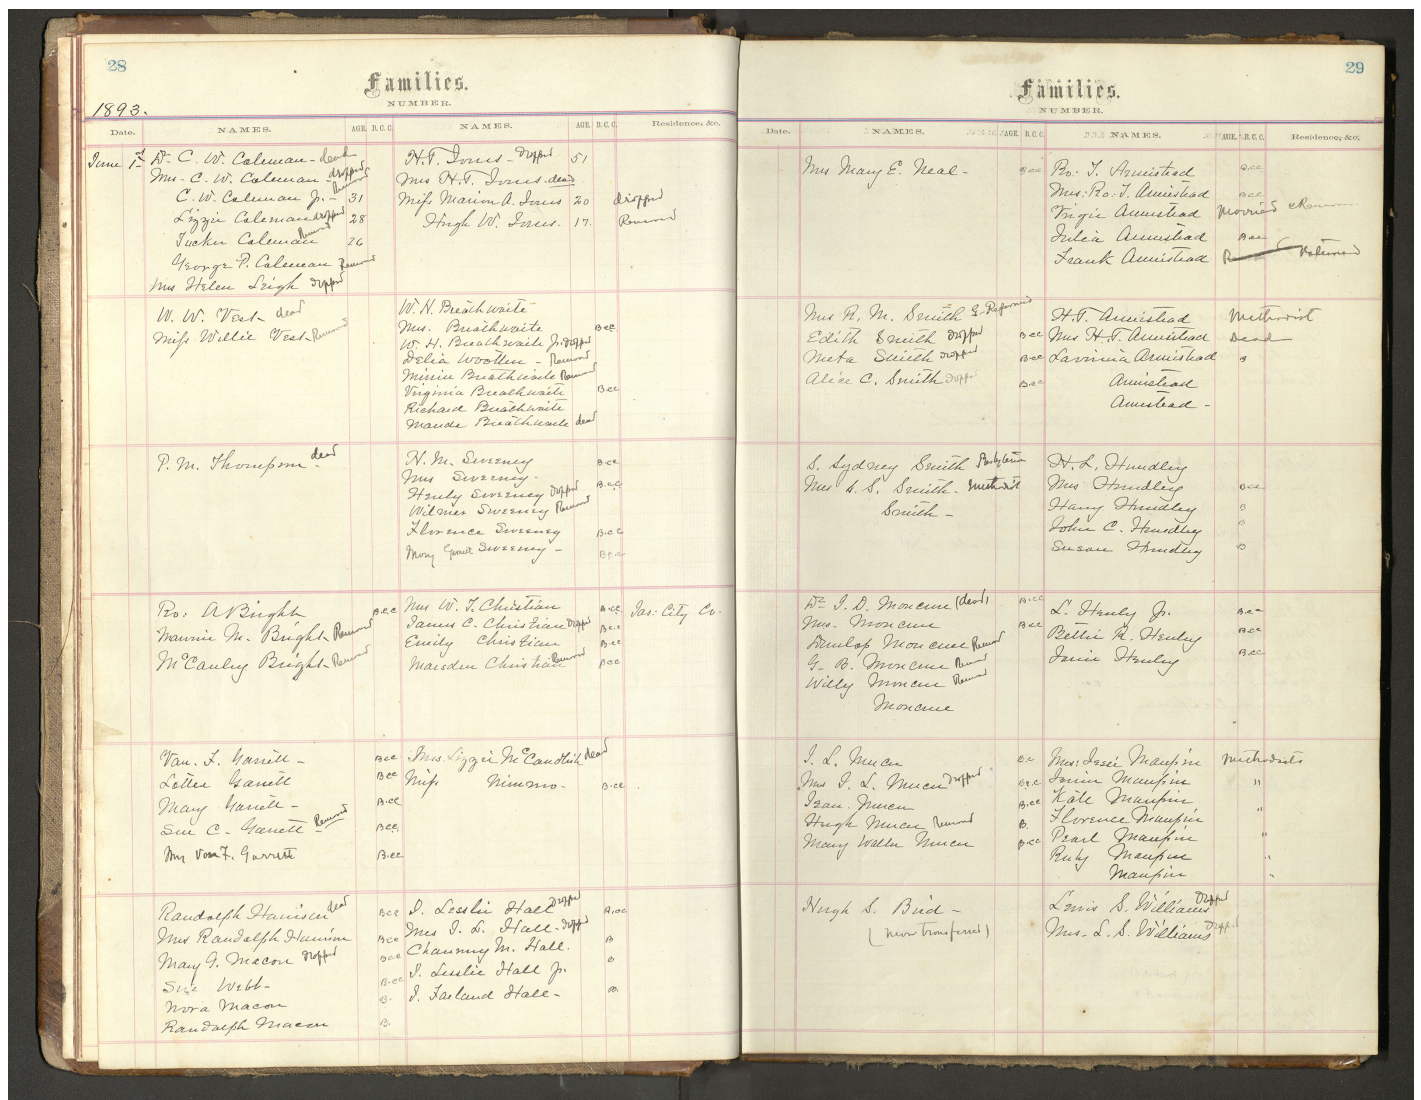 28
Families.
NUMBER.
1893.
Date. NAMES. AGE. B.C.C. NAMES. AGE. B.C.C. Residence, &c.
June 1st Dr. C. W. Coleman - dead
Mrs. C. W. Coleman - dropped
C. W. Coleman Jr. - Removed 31
Lizzie Coleman dropped 28
Tucker Coleman Removed 26
George P. Coleman Removed
Mrs Helen Leigh dropped
H. T. Jones - dropped 51
Mrs H. T. Jones - dead
Miss Marion A. Jones 20 dropped
Hugh W. Jones. 17. Removed
W. W. Vest dead
Miss Willie Vest - Removed
W. H. Breathwaite
Mrs. Breathwaite B.cc.
W. H. Breathwaite Jr. dropped
Delia Wootten - Removed
Minnie Breathwaite Removed
Virginia Breathwaite Bcc
Richard Breathwaite
Maude Breathwaite dead
P. M. Thompson - dead
H. M. Sweeney B.cc
Mrs Sweeney - B.cc
Henly Sweeney dropped
Wilmer Sweeney Removed
Florence Sweeney B.cc
Mary Sweeney - B.cc
Ro: A Bright B.cc
Mannie M. Bright - Removed
McCauley Bright - Removed
Mrs W. J. Christian B.cc Jas: City Co.
James C. Christian Dropped B.cc
Emily Christian B.cc
Marsden Christian Removed Bcc
Van. F. Garrett - Bcc
Lottie Garrett Bcc
Mary Garrett - B.cc
Sue C. Garrett - Removed Bcc,
Mrs Van F. Garrett B.cc
Mrs. Lizzie McCandlish dead
Miss Nimmo - B.cc
Randolph Harrison dead Bcc
Mrs Randolph Harrison Bcc
Mary G. Macon dropped Bcc
Sue Webb - B.cc
Nora Macon B.
Randolph Macon B.
J. Lesslie Hall Dropped B.cc
Mrs J. L. Hall - dropped
Channing M. Hall. B
J. Lesslie Hall Jr. B
J. Farland Hall - B.
29
Families.
NUMBER.
Date. NAMES. AGE. B.C.C. NAMES. AGE. B.C.C. Residence, &c.
Mrs Mary E. Neal - Bcc
Ro: T. Armistead B.cc
Mrs: Ro: T. Armistead Bcc
Virgie Armistead Married & Removed
Julia Armistead Bcc
Frank Armistead Returned
Mrs R. M. Smith G. Reformed
Edith Smith dropped Bcc
Meta Smith dropped Bcc
Alice C. Smith dropped Bcc
H. T. Armistead Methodist
Mrs H. T. Armistead Dead
Lavinia Armistead B
Armistead
Armistead -
S. Sydney Smith Presbyterian
Mrs S. S. Smith - Methodist
Smith -
H. L. Hundley
Mrs Hundley Bcc
Harry Hundley B
John C. Hundley B
Susan Hundley B
Dr. J. D. Moncure (dead) B.cc
Mrs. Moncure Bcc
Dunlop Moncure Removed
G. B. Moncure Removed
Willy Moncure Removed
Moncure
L. Henly Jr. B.cc
Bettie R. Henley Bcc
Jinnie Henley B.cc
J. L. Mercer B.c
Mrs J. L. Mercer Dropped B.c.c
Jean Mercer B.cc
Hugh Mercer Removed B.
Mary Waller Mercer B.cc
Mrs: Jesse Maupin Methodists
Jennie Maupin "
Kate Maupin
Florence Maupin "
Pearl Maupin "
Ruby Maupin "
Maupin "
Hugh S. Bird -
(now transferred)
Lewis S. Williams Dropped
Mrs. L. S. Williams Dropped